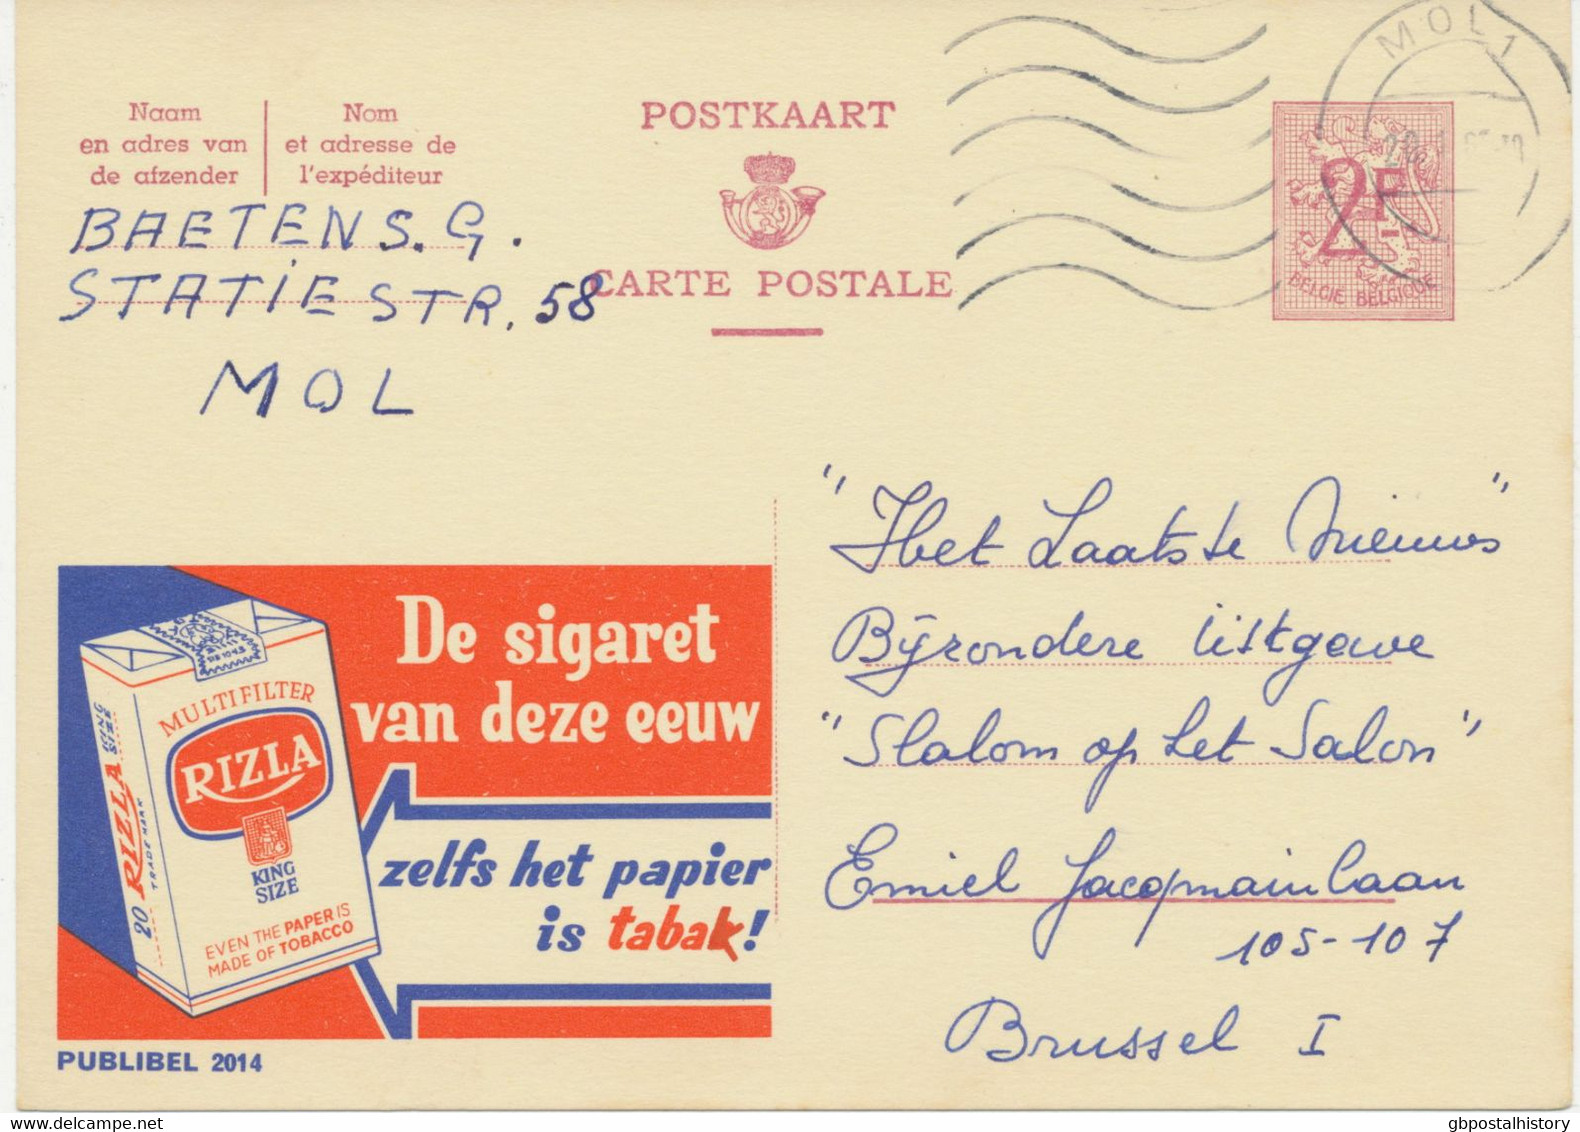 MOL 1
Naam
en adres van
de afzender
Nom
et adresse de
l'expéditeur
POSTKAART
CARTE POSTALE
2F
BELGIE BELGIQUE
BAETENS. G.
STATIESTR. 58
MOL
"Het Laatste Nieuws"
Bijzondere Uitgave
"Slalom op het Salon"
Emiel Jacqmainlaan
105-107
Brussel I
De sigaret
van deze eeuw
zelfs het papier
is tabak!
MULTIFILTER
RIZLA
KING
SIZE
EVEN THE PAPER IS
MADE OF TOBACCO
20 RIZLA KING SIZE
TRADE MARK
PUBLIBEL 2014
gbpostalhistory